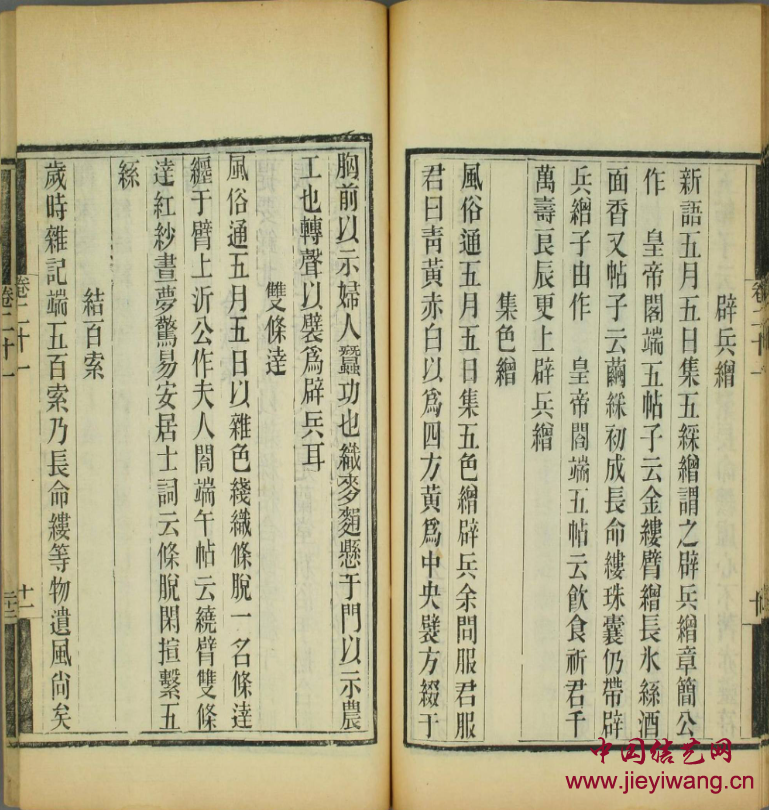 辟兵繒
新語五月五日集五綵繒謂之辟兵繒章簡公
作　皇帝閣端五帖子云金縷臂繒長氷絲酒
面香又帖子云繭綵初成長命縷珠囊仍帶辟
兵繒子由作　皇帝閤端五帖云飲食祈君千
萬壽良辰更上辟兵繒
集色繒
風俗通五月五日集五色繒辟兵余問服君服
君曰靑黃赤白以爲四方黃爲中央襞方綴于
胸前以示婦人蠶功也織麥䅌懸于門以示農
工也轉聲以襞爲辟兵耳
雙條達
風俗通五月五日以雜色綫織條脫一名條達
纒于臂上沂公作夫人閤端午帖云繞臂雙條
達紅紗晝夢驚易安居士詞云條脫閑揎繫五
絲
結百索
歲時雜記端五百索乃長命縷等物遺風尙矣
卷二十一
十一
卷二十一
二十二
中国结艺网
www.jieyiwang.cn